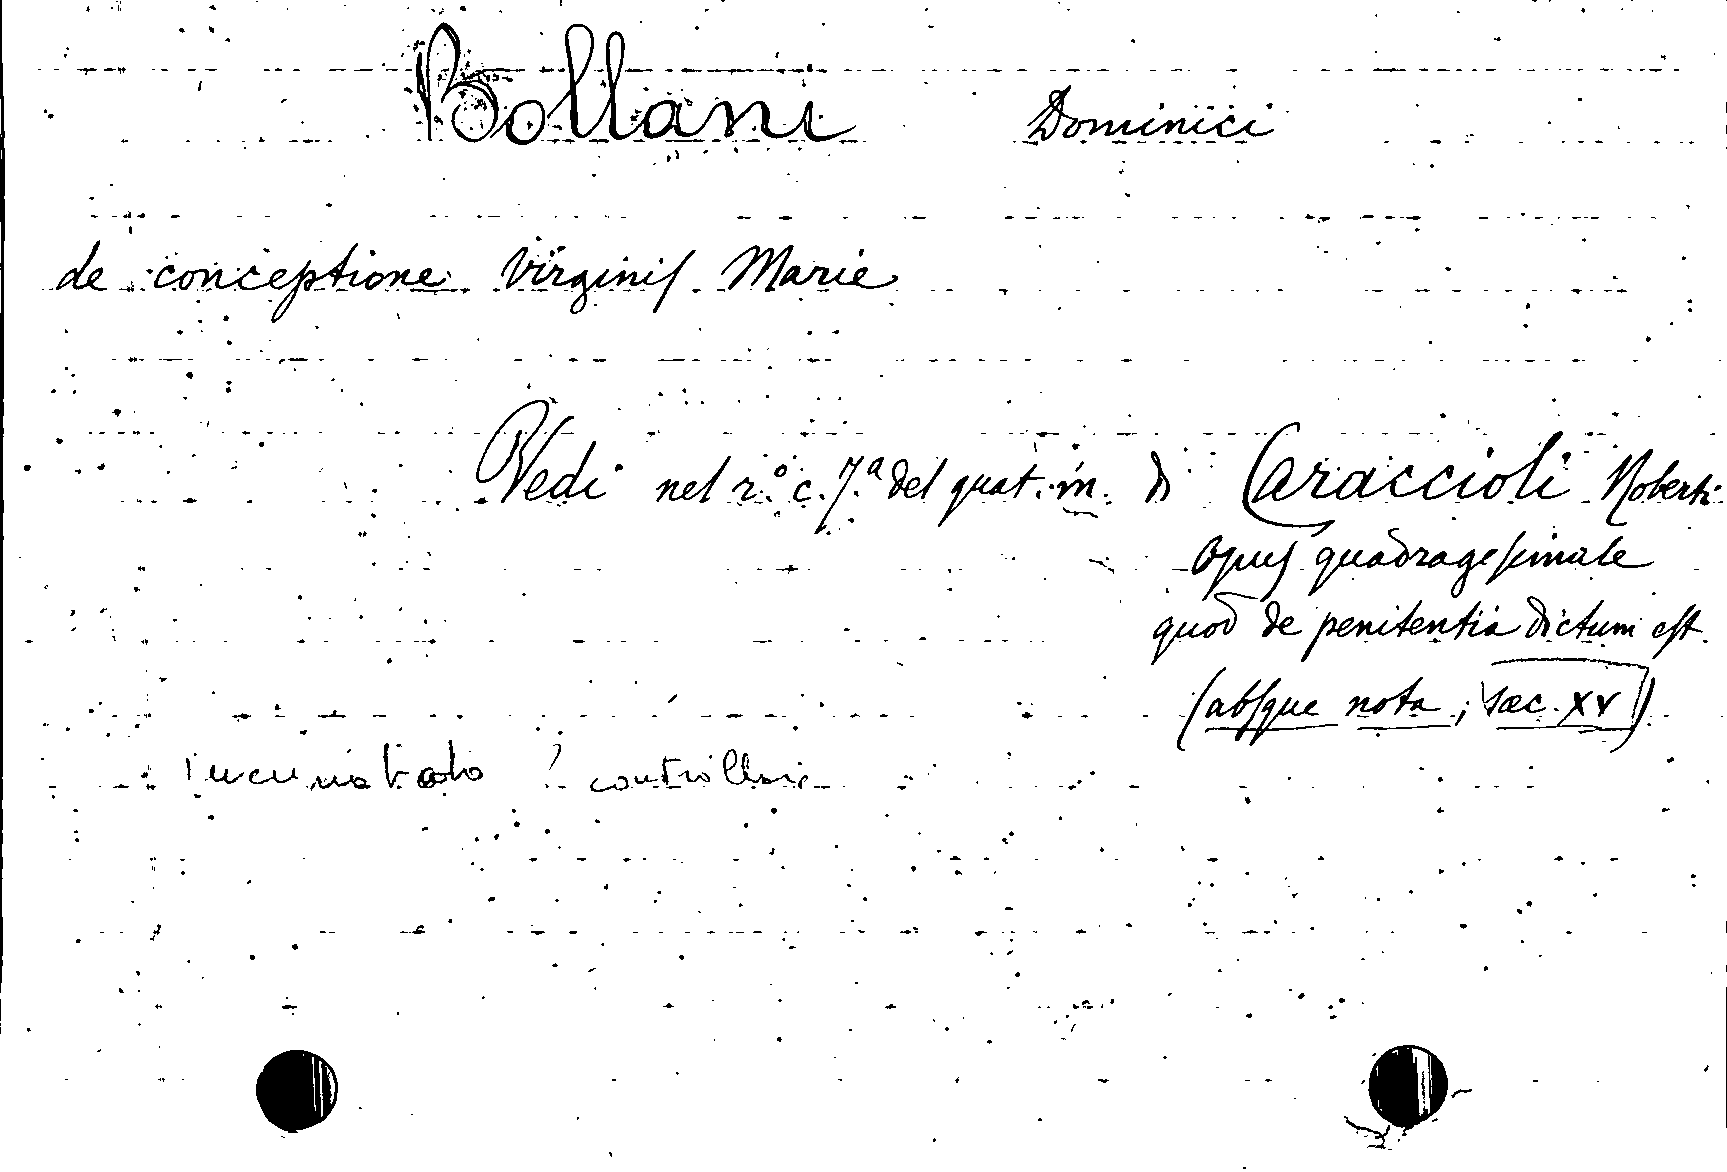 Bollani Dominici
de conceptione Virginis Marie
Vedi nel r.º c. 7.ª del quat. m. di Caraccioli Roberti
Opus quadragesimale
quod de penitentia dictum est.
(absque nota; sæc. XV)
incunabolo ? controllare